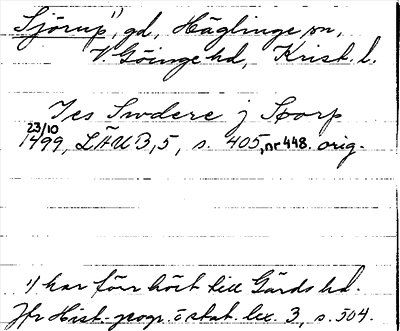 Sjörup¹⁾, gd, Häglinge sn,
V. Göinge hd, Krist. l.
Jes Swdere j Siorp
23/10
1499, LÄU 3,5, s. 405, nr 448. orig.
1) har förr hört till Gärds hd.
Jfr Hist.-geogr. o stat. lex. 3, s. 504.